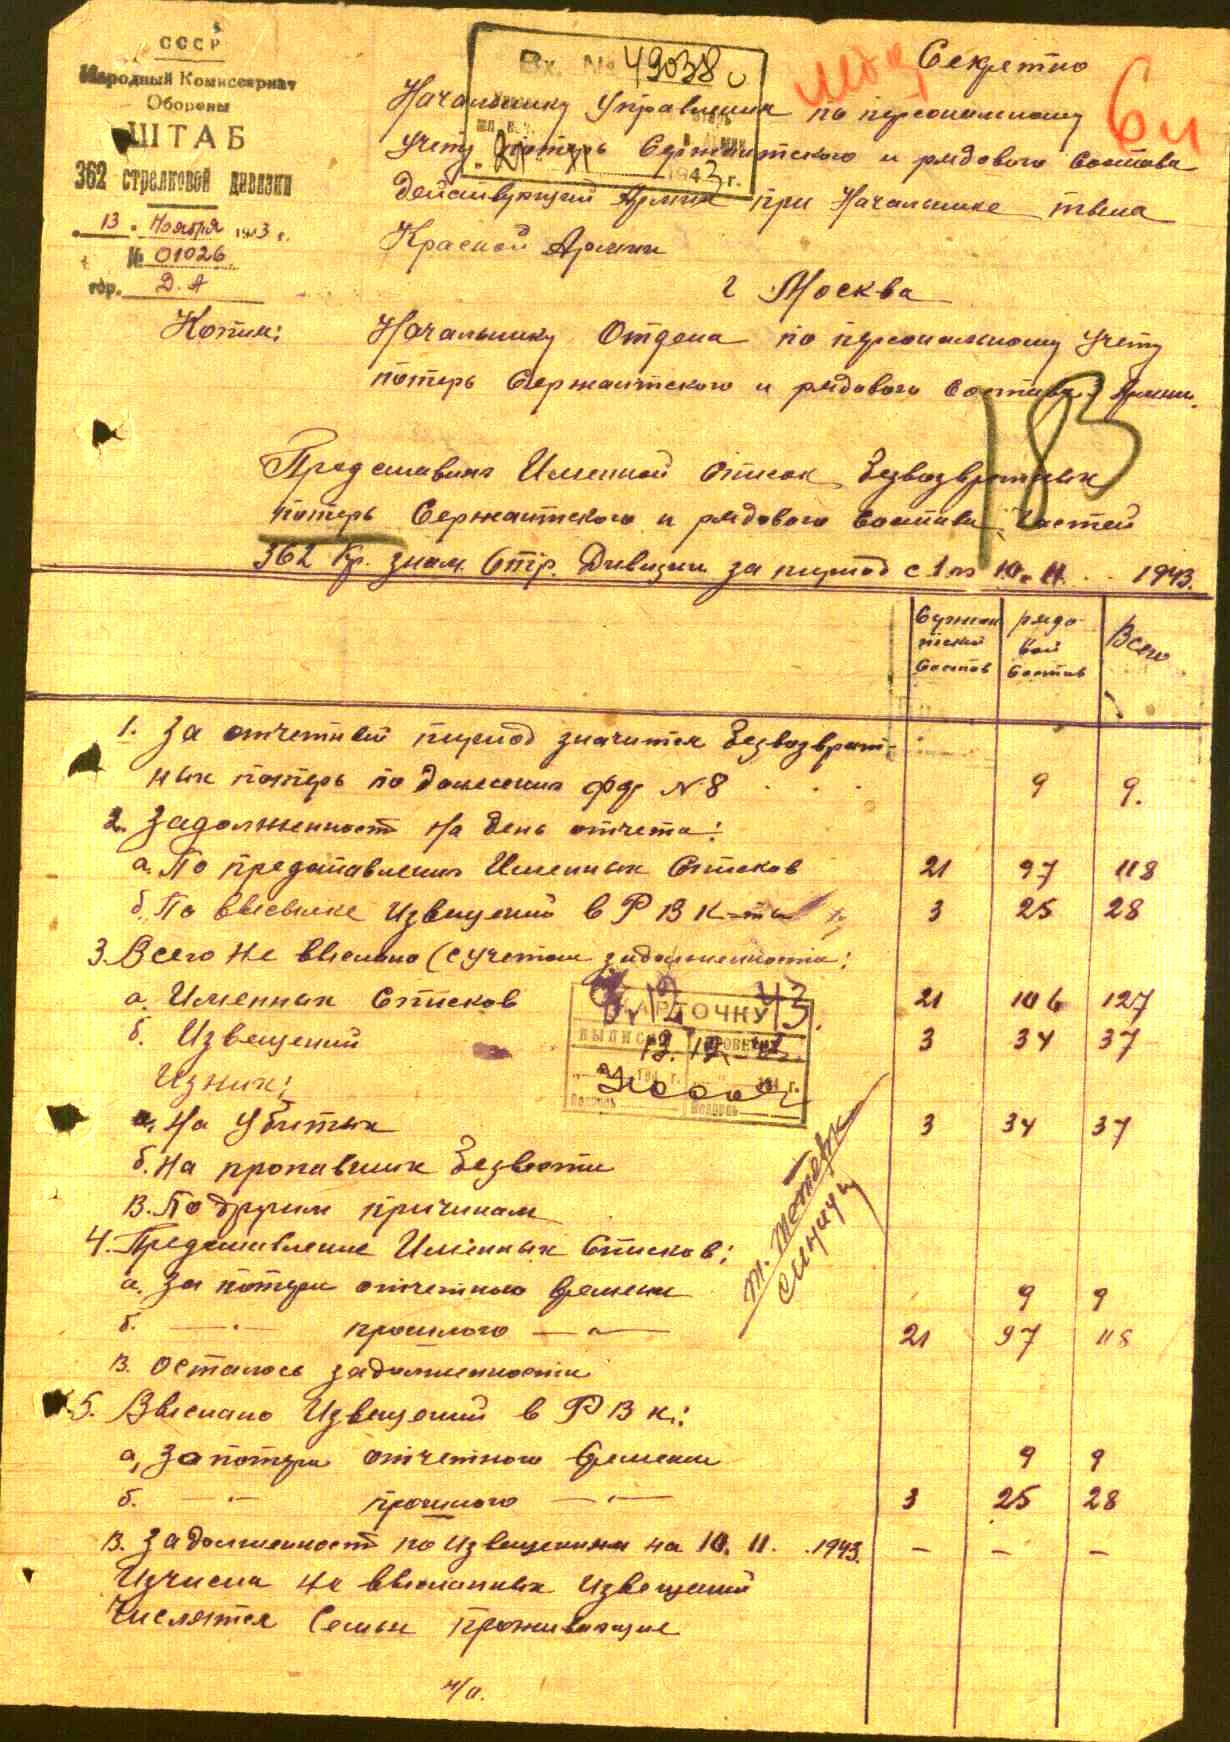 СССР
Народный Комиссариат
Обороны
ШТАБ
362 стрелковой дивизии
13 Ноября 1943 г.
№ 01026
гор. Д. А
Вх. № 49038
1943 г.
Секретно
6 л
Начальнику Управления по персональному
учету потерь Сержантского и рядового Состава
действующей Армии при Начальнике тыла
Красной Армии
г Москва
Копия: Начальнику Отдела по персональному учету
потерь Сержантского и рядового Состава Армии.
183
Представляю Именной Список Безвозвратных
потерь Сержантского и рядового Состава частей
362 Кр. знам. Стр. Дивизии за период с 1 по 10. 11. 1943.
Сержантский Состав
рядовой Состав
Всего
1. За отчетный период значится Безвозврат-
ных потерь по донесению фор № 8 . . . 9 9.
2. Задолженность на день отчета:
а. По представлению Именных Списков 21 97 118
б. По высылке Извещений в РВК-ты 3 25 28
3. Всего не выслано (с учетом задолженности:
а. Именных Списков 21 106 127
б. Извещений 3 34 37
Из них:
а. На Убитых 3 34 37
б. На пропавших Безвести
В. По другим причинам
4. Представление Именных Списков:
а. За потери отчетного Времени 9 9
б. — " — прошлого — " — 21 97 118
В. осталось задолженности
5. Выслано Извещений в РВК:
а, За потери отчетного Времени 9 9
б. — " — прошлого — " — 3 25 28
В. Задолженность по Извещениям на 10. 11. 1943. — — —
Из числа не высланных извещений
Числятся Семьи проживающие
н/о.
КАРТОЧКУ
ВЫПИСАЛ
ПРОВЕРИЛ
194 г.
194 г.